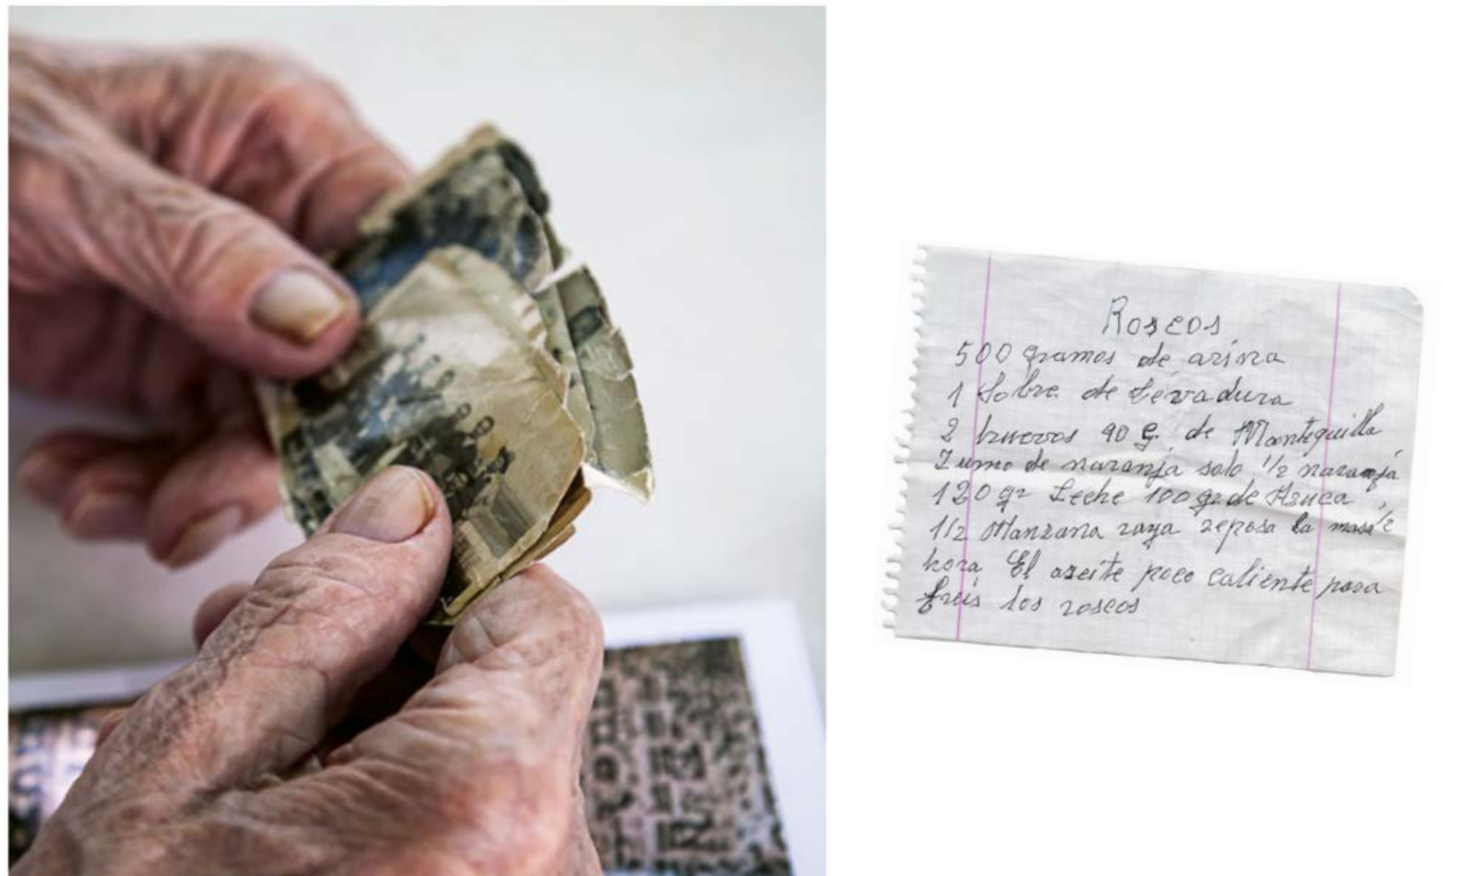 Roscos
500 gramos de arina
1 Sobre de Levadura
2 huevos 90 g. de Mantequilla
Zumo de naranja solo 1/2 naranja
120 gr Leche 100 gr de Asuca
1/2 Manzana raya reposa la masa 1/2
hora El aseite poco caliente para
freis los roscos